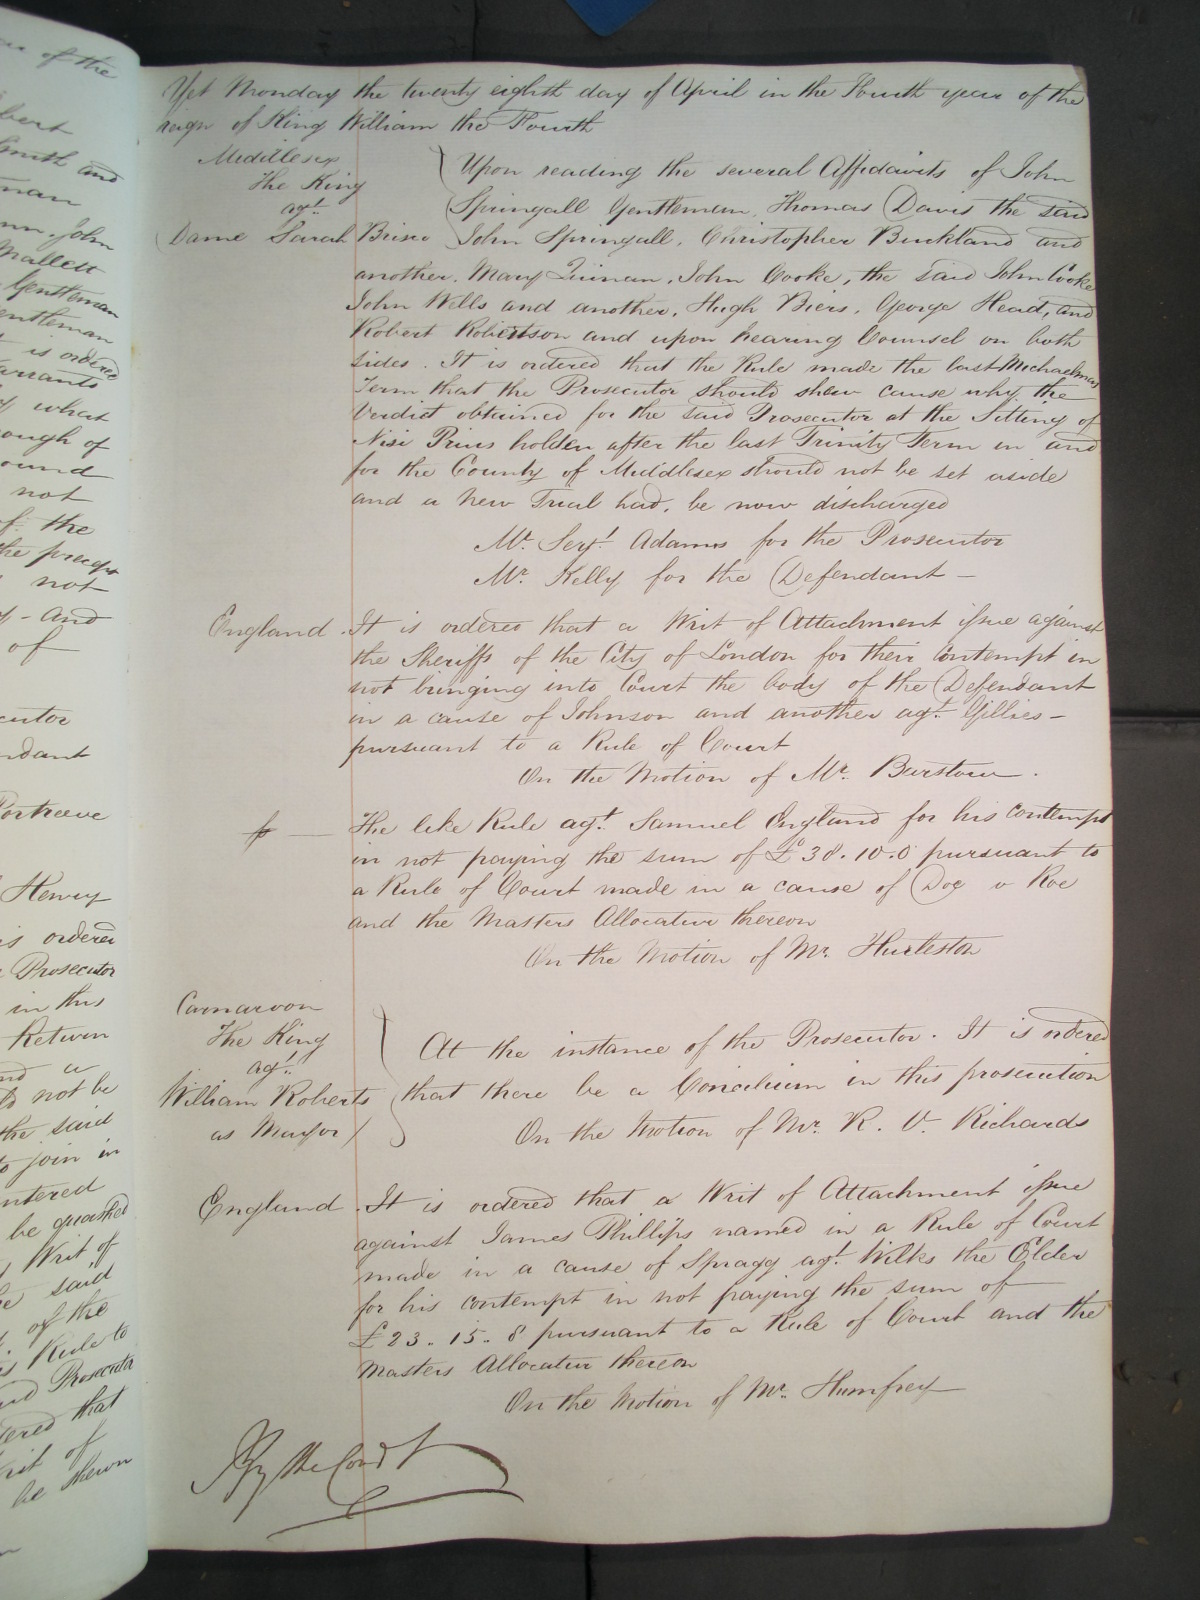 Yet Monday the twenty eighth day of April in the Fourth year of the
reign of King William the Fourth
Middlesex
The King
agt.
Dame Sarah Brisco
Upon reading the several Affidavits of John
Springall Gentleman, Thomas Davis the said
John Springall, Christopher Buckland and
another, Mary Quinan, John Cooke, the said John Cooke
John Wells and another, Hugh Biers, George Head, and
Robert Robertson and upon hearing Counsel on both
sides. It is ordered that the Rule made the last Michaelmas
Term that the Prosecutor should shew cause why the
Verdict obtained for the said Prosecutor at the Sitting of
Nisi Prius holden after the last Trinity Term in and
for the County of Middlesex should not be set aside
and a new Trial had, be now discharged
Mr. Serjt. Adams for the Prosecutor
Mr. Kelly for the Defendant —
England. It is ordered that a Writ of Attachment issue against
the Sheriffs of the City of London for their Contempt in
not bringing into Court the body of the Defendant
in a cause of Johnson and another agt. Gillies —
pursuant to a Rule of Court
On the Motion of Mr. Barstow.
The like Rule agt. Samuel England for his contempt
in not paying the sum of £38.10.0 pursuant to
a Rule of Court made in a cause of Doe v Roe
and the Masters Allocatur thereon
On the Motion of Mr. Hurleston
Carnarvon
The King
agt.
William Roberts
as Mayor
At the instance of the Prosecutor. It is ordered
that there be a Concilium in this prosecution
On the Motion of Mr. R. V. Richards
England. It is ordered that a Writ of Attachment issue
against James Phillips named in a Rule of Court
made in a cause of Spragg agt. Wilks the Elder
for his contempt in not paying the sum of
£23.15.8 pursuant to a Rule of Court and the
Masters Allocatur thereon
On the Motion of Mr. Humfrey
By the Court